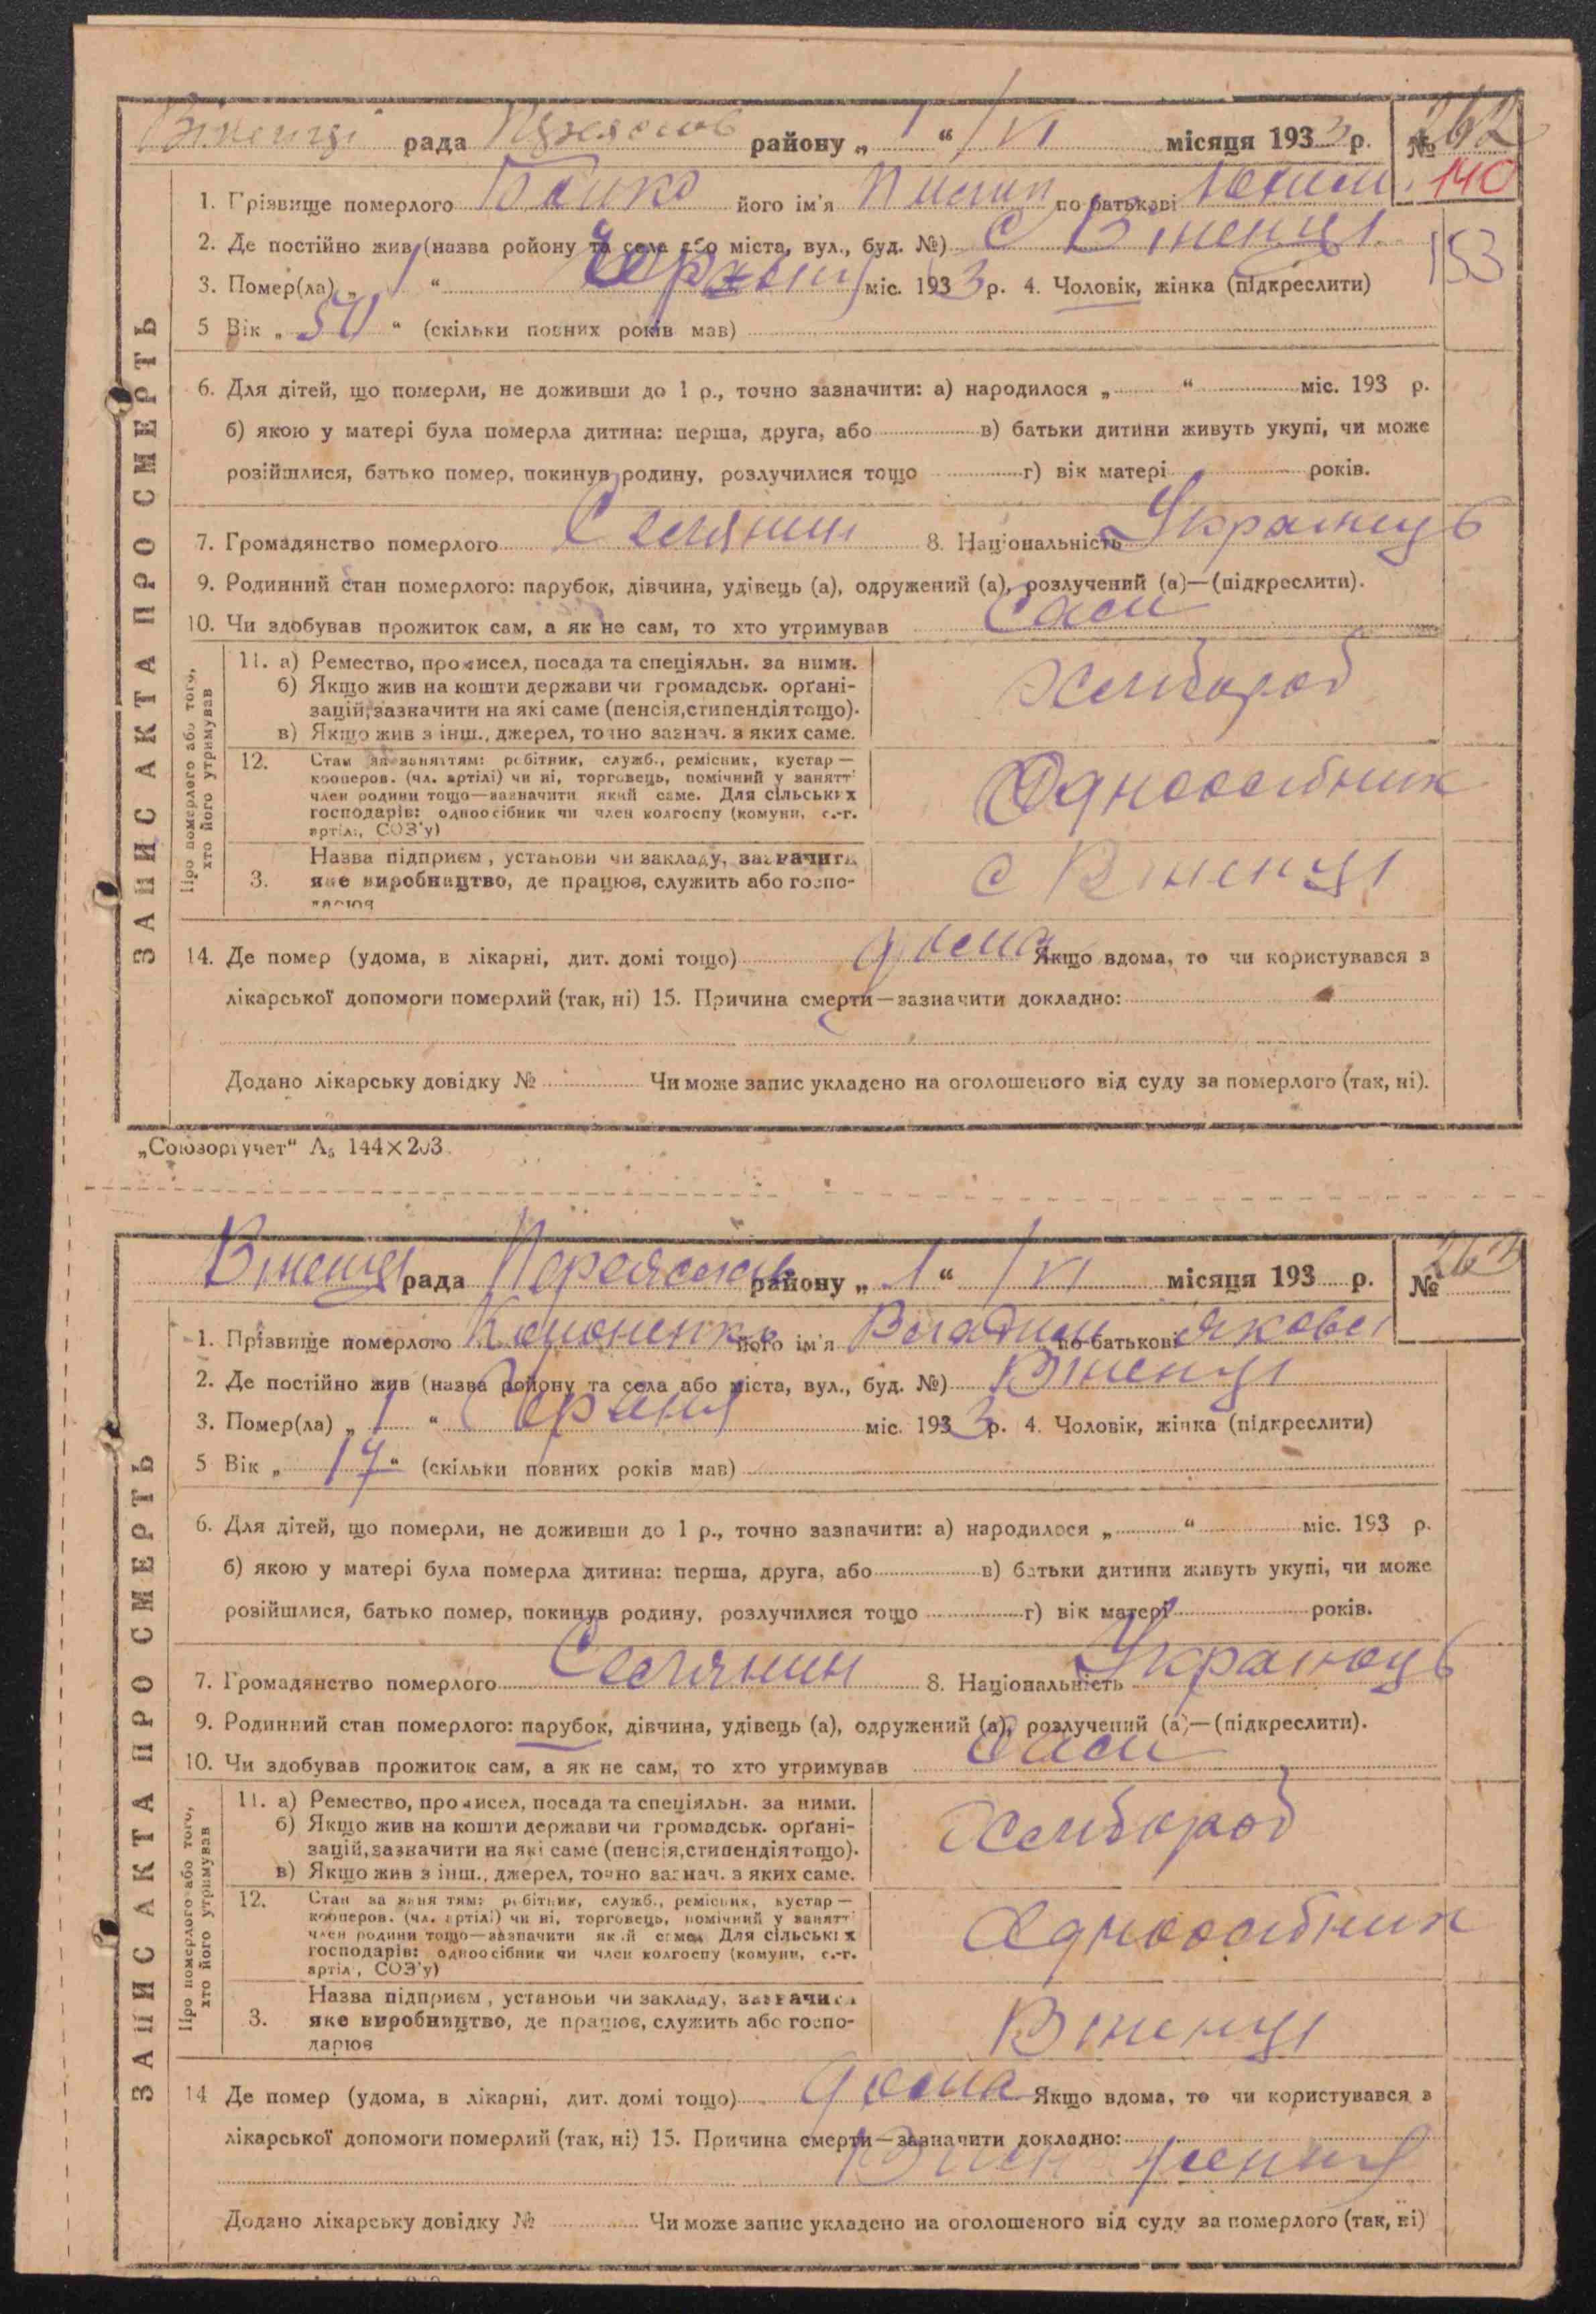 Віненці рада району „ 1 “ / VI місяця 1933 р. № 262
140
1. Прізвище померлого Бойко його ім'я Пилип по батькові
2. Де постійно жив (назва ройону та села або міста, вул., буд. №) С Віненці
153
3. Помер(ла) „ 1 “ Червня міс. 1933 р. 4. Чоловік, жінка (підкреслити)
5 Вік „ 50 “ (скільки повних років мав)
6. Для дітей, що померли, не доживши до 1 р., точно зазначити: а) народилося „ “ міс. 193 р.
б) якою у матері була померла дитина: перша, друга, або в) батьки дитини живуть укупі, чи може
розійшлися, батько помер, покинув родину, розлучилися тощо г) вік матері років.
7. Громадянство померлого Селянин 8. Національність Украінець
9. Родинний стан померлого: парубок, дівчина, удівець (а), одружений (а), розлучений (а)—(підкреслити).
10. Чи здобував прожиток сам, а як не сам, то хто утримував Сам
ЗАПИС АКТА ПРО СМЕРТЬ
Про померлого або того,
хто його утримував
11. а) Ремество, промисел, посада та спеціяльн. за ними.
б) Якщо жив на кошти держави чи громадськ. орґані-
зацій, зазначити на які саме (пенсія, стипендія тощо).
в) Якщо жив з інш., джерел, точно зазнач. з яких саме.
Хлібороб
12. Стан за заняттям: робітник, служб., ремісник, кустар—
кооперов. (чл. артілі) чи ні, торговець, помічний у занятті
член родини тощо—зазначити який саме. Для сільських
господарів: одноосібник чи член колгоспу (комуни, с.-г.
артілі, СОЗ'у)
Одноосібник
3. Назва підприєм, установи чи закладу, зазначити
яке виробництво, де працює, служить або госпо-
дарює
с Віненці
14. Де помер (удома, в лікарні, дит. домі тощо) дома Якщо вдома, то чи користувався з
лікарської допомоги померлий (так, ні) 15. Причина смерти—зазначити докладно:
Додано лікарську довідку № Чи може запис укладено на оголошеного від суду за померлого (так, ні).
„Союзоргучет“ А₅ 144×203.
Віненці рада Переяслав району „ 1 “ / VI місяця 193 р. № 263
1. Прізвище померлого Кононенко його ім'я по батькові Якович
2. Де постійно жив (назва ройону та села або міста, вул., буд. №) Віненці
3. Помер(ла) „ 1 “ Червня міс. 1933 р. 4. Чоловік, жінка (підкреслити)
5 Вік „ 17 “ (скільки повних років мав)
6. Для дітей, що померли, не доживши до 1 р., точно зазначити: а) народилося „ “ міс. 193 р.
б) якою у матері була померла дитина: перша, друга, або в) батьки дитини живуть укупі, чи може
розійшлися, батько помер, покинув родину, розлучилися тощо г) вік матері років.
7. Громадянство померлого Селянин 8. Національність Украінець
9. Родинний стан померлого: парубок, дівчина, удівець (а), одружений (а), розлучений (а)—(підкреслити).
10. Чи здобував прожиток сам, а як не сам, то хто утримував Сам
ЗАПИС АКТА ПРО СМЕРТЬ
Про померлого або того,
хто його утримував
11. а) Ремество, промисел, посада та спеціяльн. за ними.
б) Якщо жив на кошти держави чи громадськ. орґані-
зацій, зазначити на які саме (пенсія, стипендія тощо).
в) Якщо жив з інш., джерел, точно зазнач. з яких саме.
Хлібороб
12. Стан за заняттям: робітник, служб., ремісник, кустар—
кооперов. (чл. артілі) чи ні, торговець, помічний у занятті
член родини тощо—зазначити який саме. Для сільських
господарів: одноосібник чи член колгоспу (комуни, с.-г.
артілі, СОЗ'у)
Одноосібник
3. Назва підприєм, установи чи закладу, зазначити
яке виробництво, де працює, служить або госпо-
дарює
Віненці
14 Де помер (удома, в лікарні, дит. домі тощо) дома Якщо вдома, то чи користувався з
лікарської допомоги померлий (так, ні) 15. Причина смерти—зазначити докладно:
Додано лікарську довідку № Чи може запис укладено на оголошеного від суду за померлого (так, ні)